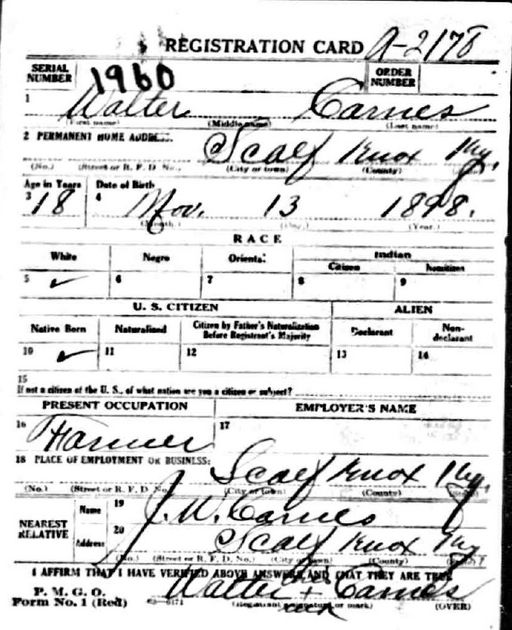 REGISTRATION CARD A-2178
SERIAL NUMBER 1960 ORDER NUMBER
1 Walter Carnes
(First name) (Middle name) (Last name)
2 PERMANENT HOME ADDRESS: Scalf Knox Ky.
(No.) (Street or R. F. D. No.) (City or town) (County)
Age in Years Date of Birth
3 18 4 Nov. 13 1898.
(Month.) (Day.) (Year.)
RACE
White Negro Oriental Indian
Citizen Noncitizen
5 ✓ 6 7 8 9
U. S. CITIZEN ALIEN
Native Born Naturalized Citizen by Father's Naturalization Before Registrant's Majority Declarant Non-declarant
10 ✓ 11 12 13 14
15
If not a citizen of the U. S., of what nation are you a citizen or subject?
PRESENT OCCUPATION EMPLOYER'S NAME
16 Farmer 17
18 PLACE OF EMPLOYMENT OR BUSINESS: Scalf Knox Ky.
(No.) (Street or R. F. D. No.) (City or town) (County)
NEAREST RELATIVE Name 19 J. W. Carnes
Address 20 Scalf Knox Ky
(No.) (Street or R. F. D. No.) (City or town) (County)
I AFFIRM THAT I HAVE VERIFIED ABOVE ANSWERS AND THAT THEY ARE TRUE
P. M. G. O.
Form No. 1 (Red) Walter + Carnes
(Registrant's signature or mark) (OVER)